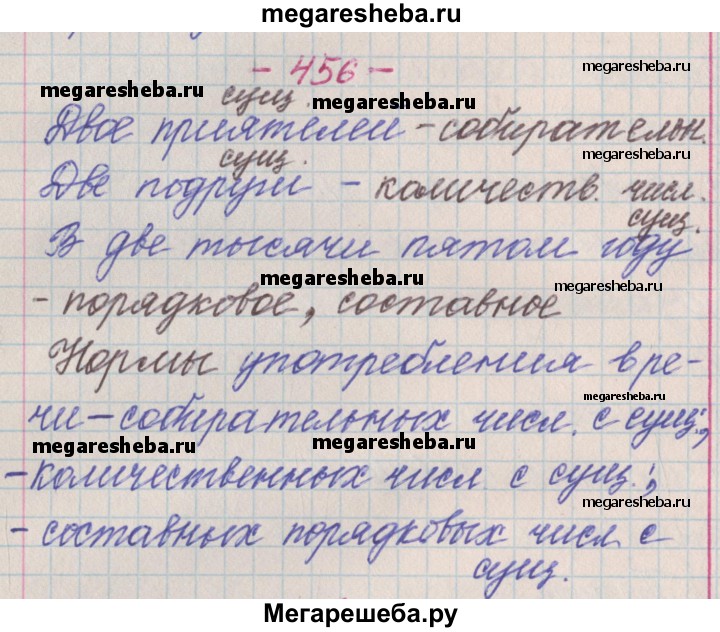 megaresheba.ru
- 456 -
megaresheba.ru
megaresheba.ru
сущ.
Двое приятелей - собирательн.
megaresheba.ru
сущ.
Две подруги - количеств. числ.
сущ.
В две тысячи пятом году
megaresheba.ru
megaresheba.ru
- порядковое, составное
Нормы употребления в ре-
megaresheba.ru
чи - собирательных числ. с сущ.;
megaresheba.ru
megaresheba.ru
- количественных числ. с сущ.;
megaresheba.ru
- составных порядковых числ. с
сущ.
Мегарешеба.ру